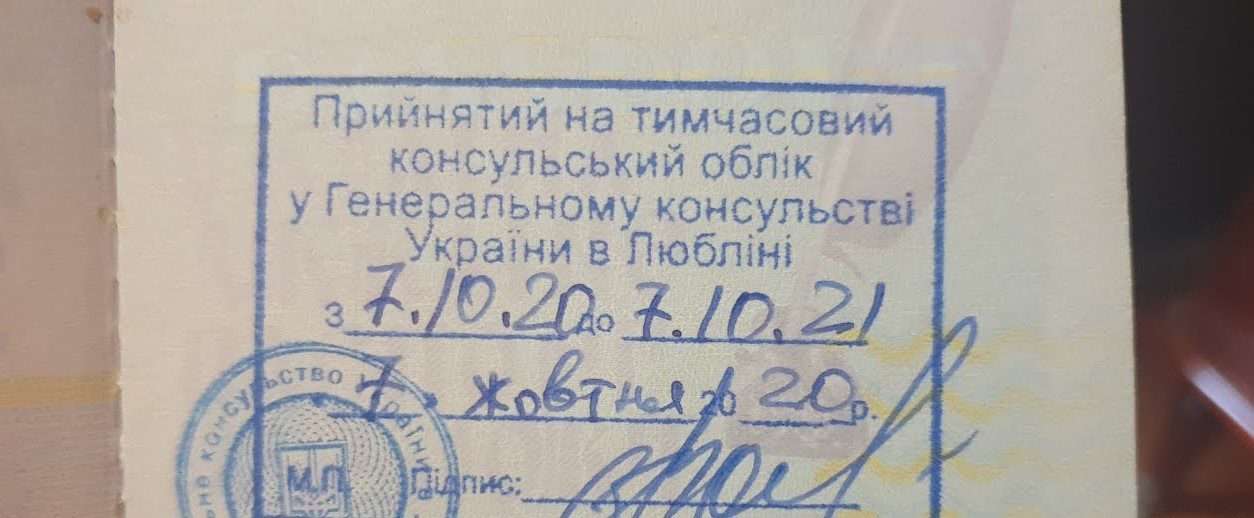 Прийнятий на тимчасовий
консульський облік
у Генеральному консульстві
України в Любліні
з 7.10.20 до 7.10.21
7 жовтня 20 20 р.
Підпис:
М.П.
консульство України